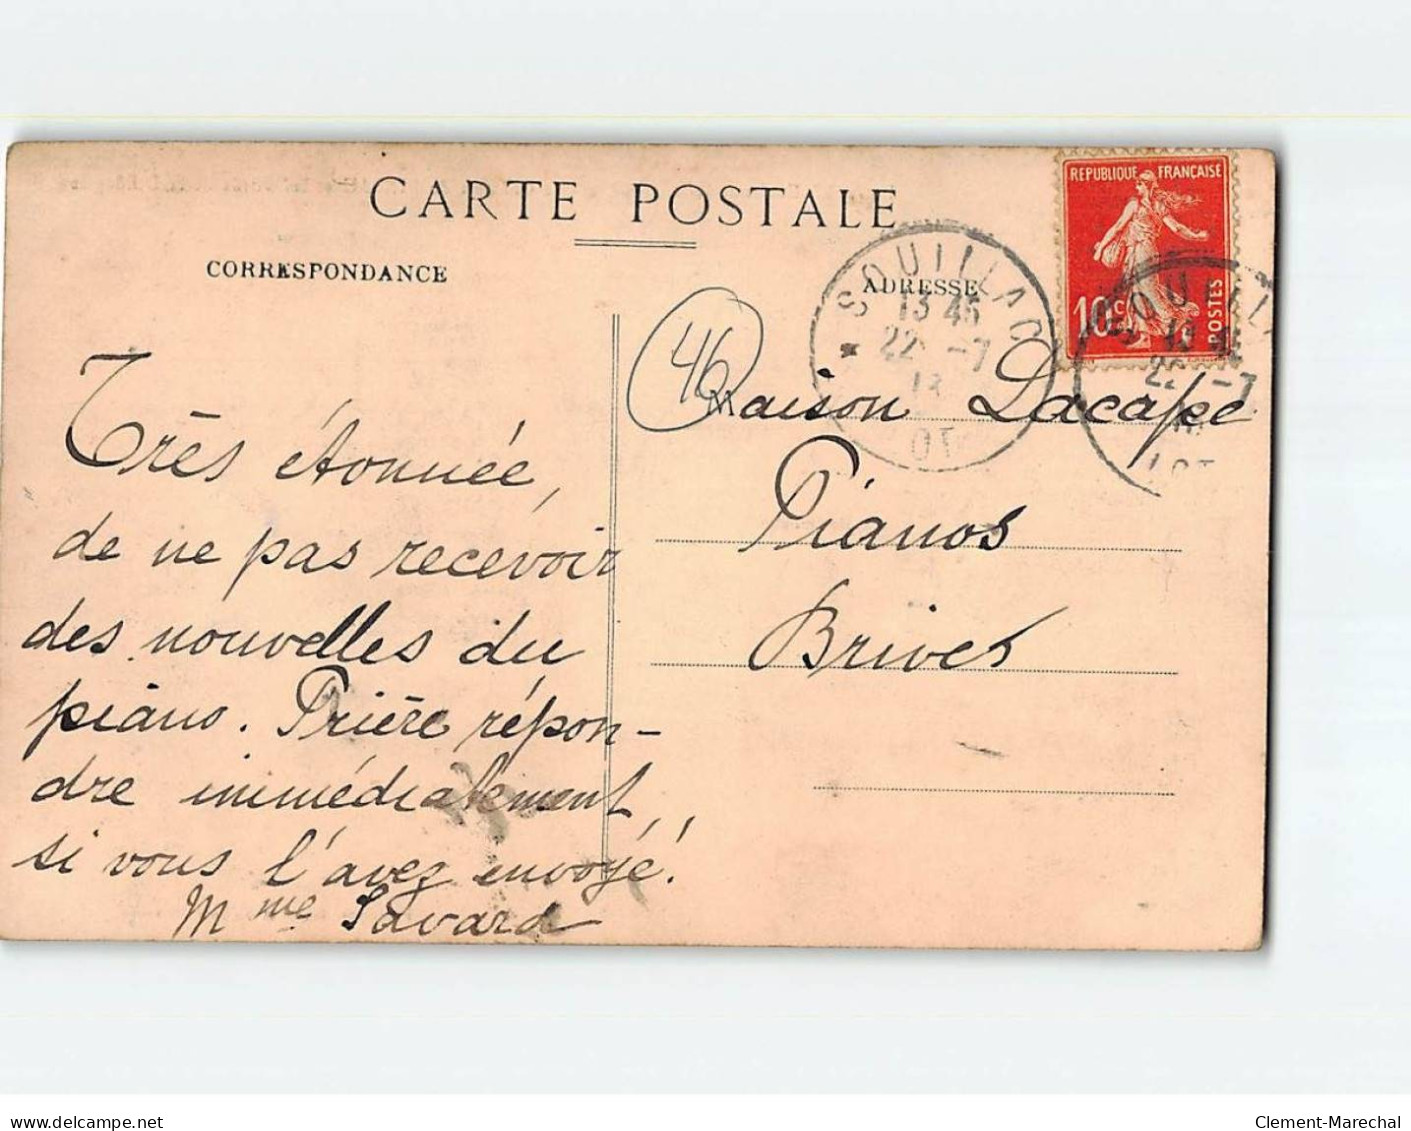 CARTE POSTALE
CORRESPONDANCE
ADRESSE
REPUBLIQUE FRANÇAISE
10c
POSTES
SOUILLAC
13 45
22 -7
13
LOT
SOUILLAC
13 45
22 -7
LOT
46
Très étonnée,
de ne pas recevoir
des nouvelles du
piano. Prière répon-
dre immédiatement
si vous l'avez envoyé!
Mme Savard
Maison Lacape
Pianos
Brives
delcampe.net
Clement-Marechal